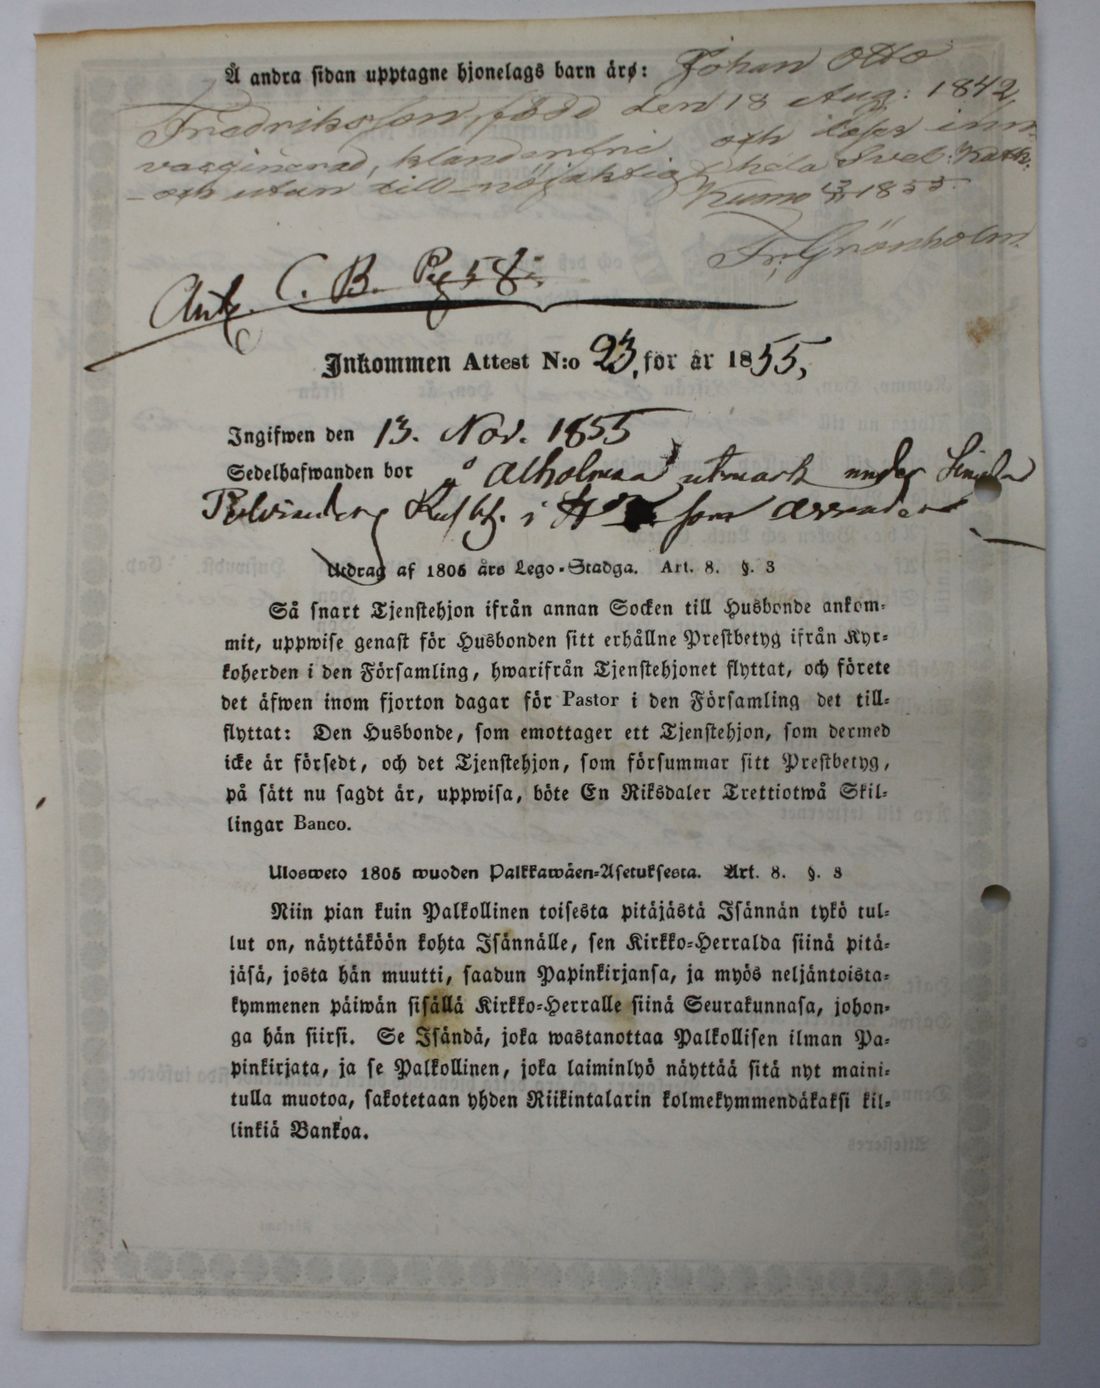 Å andra sidan upptagne hjonelags barn äro: Johan Otto
Fredriksson, född den 18 Aug: 1842,
vaccinerad, klanderfri och läser inn-
och utan till nöjaktigt hela Svel: Kath:
Kumo 1855.
Fr: Grönholm
Ant. C. B. Pag 58
Inkommen Attest N:o 23, för år 1855,
Ingifwen den 13. Nov. 1855
Sedelhafwanden bor å utmark under
i som
Utdrag af 1805 års Lego-Stadga. Art. 8. §. 3
Så snart Tjenstehjon ifrån annan Socken till Husbonde ankom-
mit, uppwise genast för Husbonden sitt erhållne Prestbetyg ifrån Kyr-
koherden i den Församling, hwarifrån Tjenstehjonet flyttat, och förete
det äfwen inom fjorton dagar för Pastor i den Församling det till-
flyttat: Den Husbonde, som emottager ett Tjenstehjon, som dermed
icke är försedt, och det Tjenstehjon, som försummar sitt Prestbetyg,
på sätt nu sagdt är, uppwisa, böte En Riksdaler Trettiotwå Skil-
lingar Banco.
Ulosweto 1805 wuoden Palkkawäen-Asetuksesta. Art. 8. §. 3
Niin pian kuin Palkollinen toisesta pitäjästä Isännän tykö tul-
lut on, näyttäköön kohta Isännälle, sen Kirkko-Herralda siinä pitä-
jäsä, josta hän muutti, saadun Papinkirjansa, ja myös neljäntoista-
kymmenen päiwän sisällä Kirkko-Herralle siinä Seurakunnasa, johon-
ga hän siirsi. Se Isändä, joka wastanottaa Palkollisen ilman Pa-
pinkirjata, ja se Palkollinen, joka laiminlyö näyttää sitä nyt maini-
tulla muotoa, sakotetaan yhden Riikintalarin kolmekymmendäkaksi kil-
linkiä Bankoa.